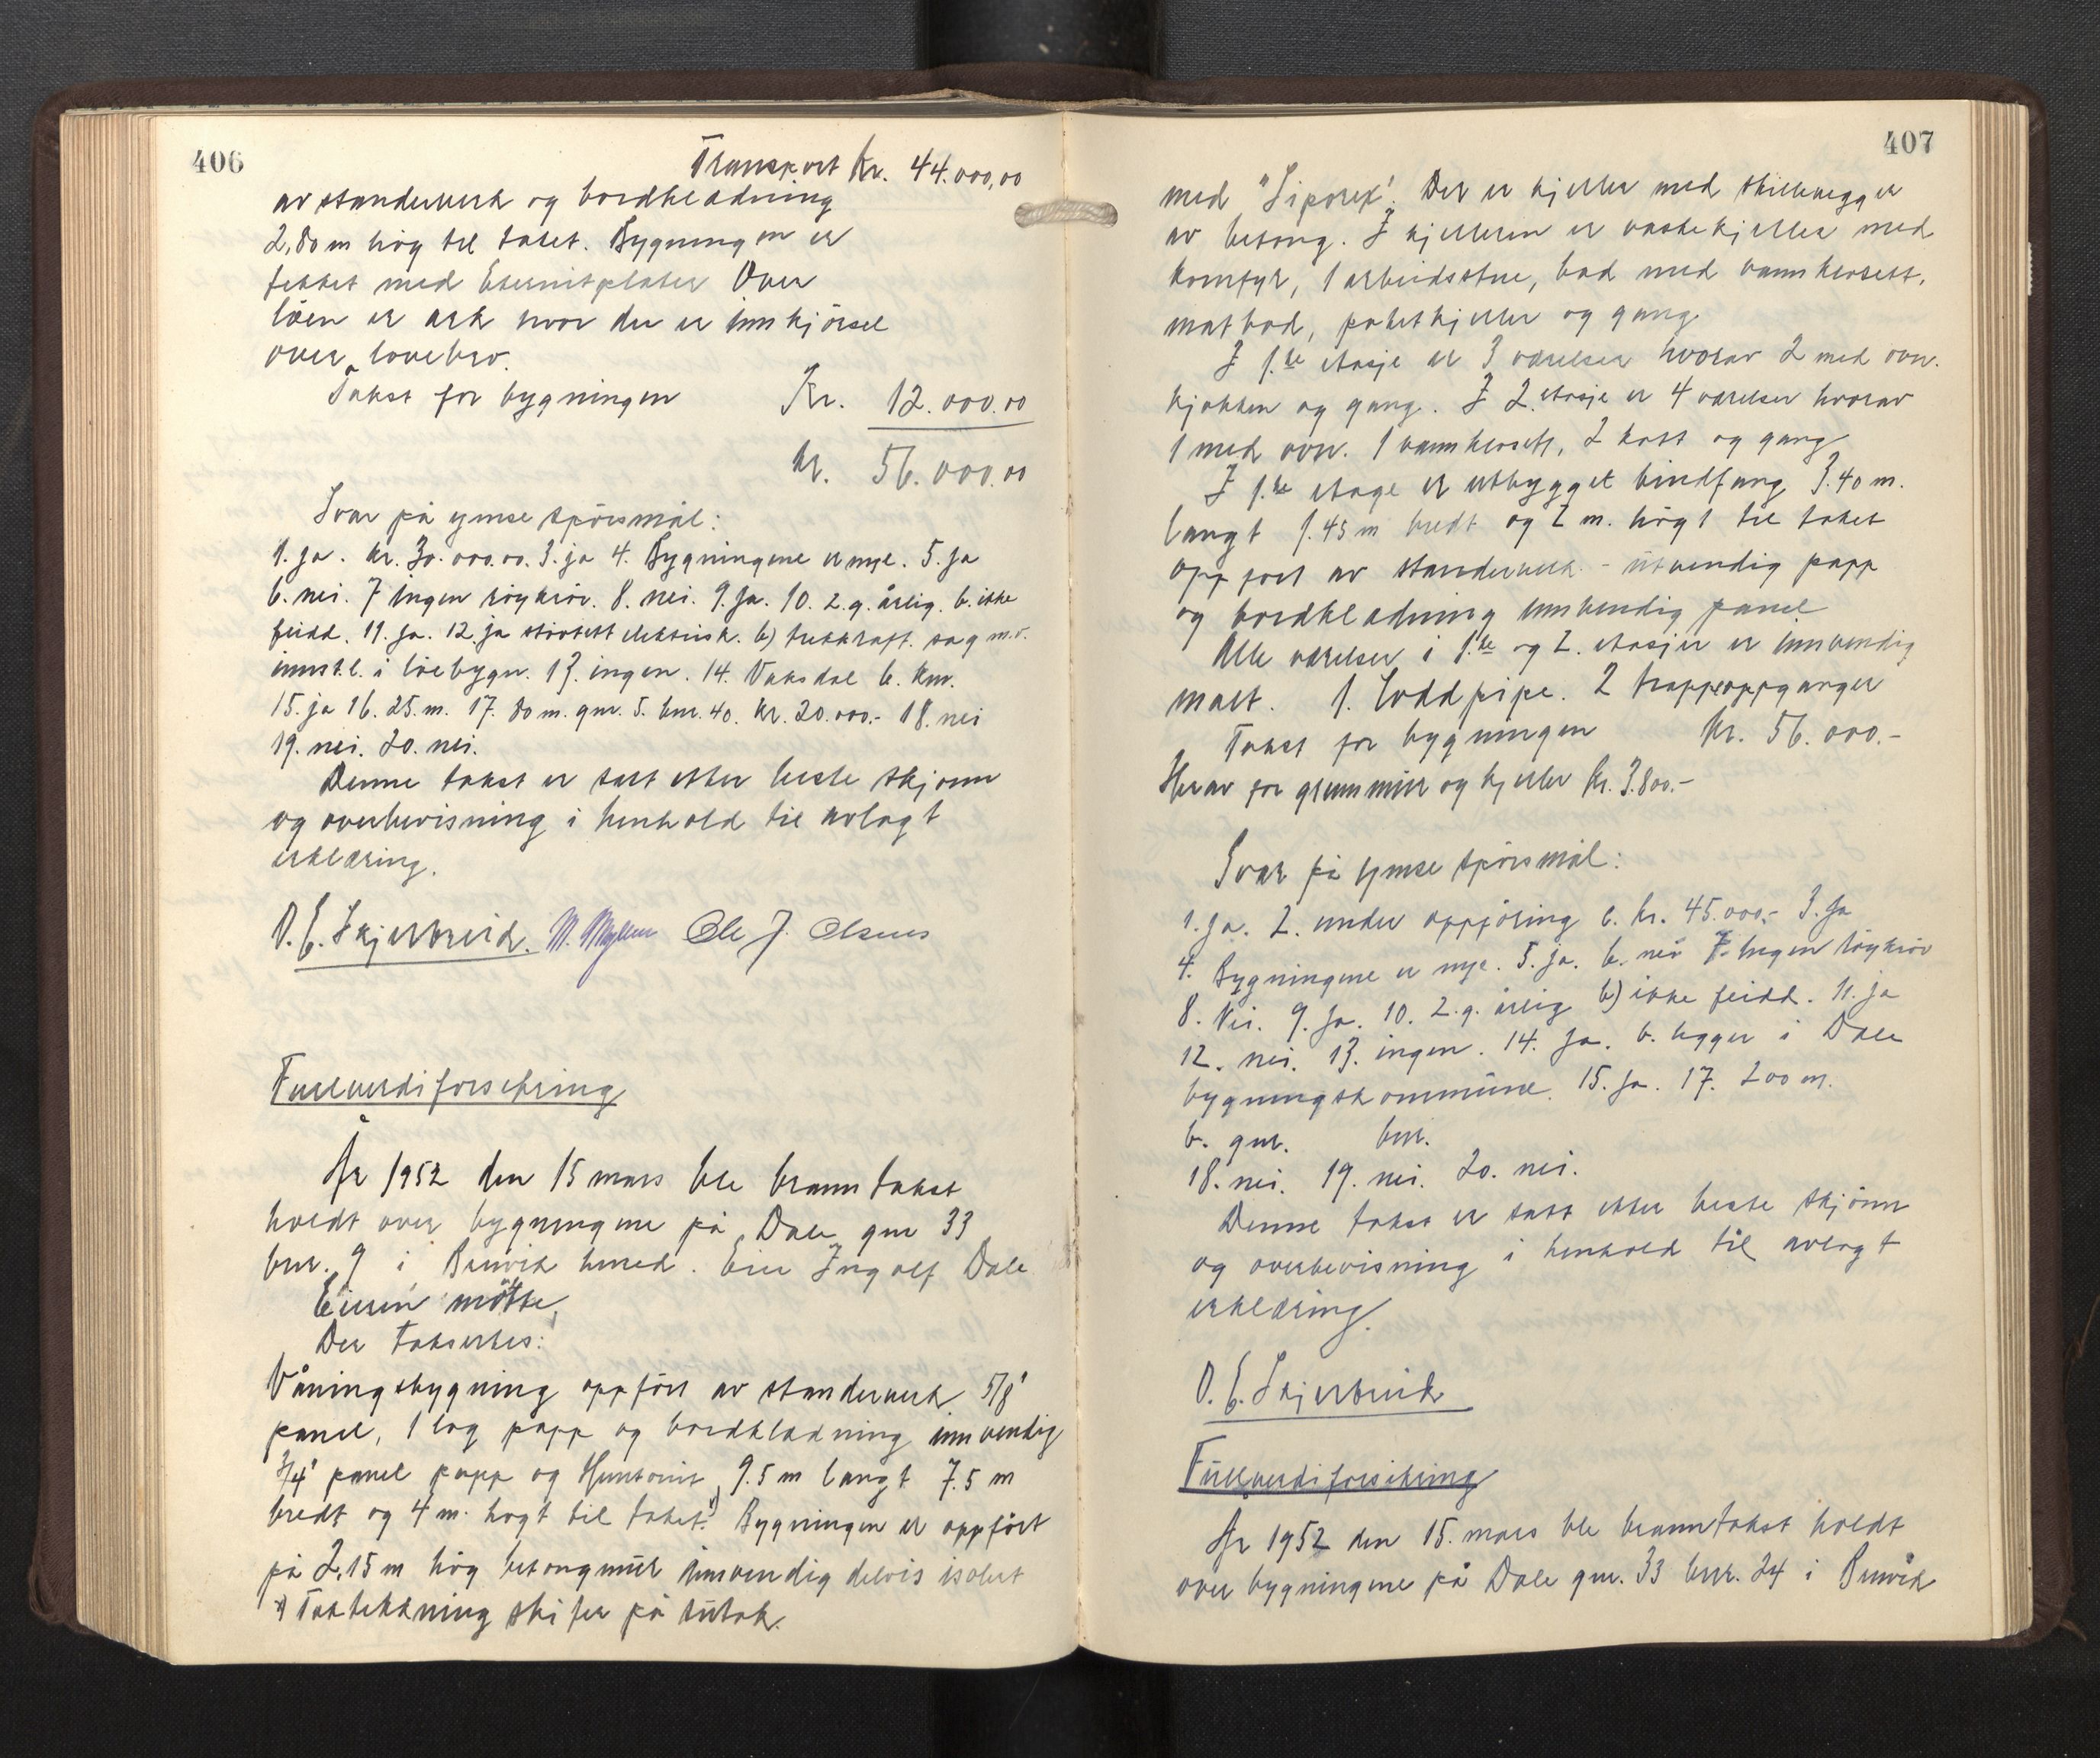 406
Transport Kr. 44.000,00
av standerverk og bordkledning
2,80 m hög til taket. Bygningen er
tekket med Eternitplater Over
löen er ark hvor der er innkjörsel
over lovebro.
Takst for bygningen Kr. 12.000.00
kr. 56.000.00
Svar på ymse spörsmål:
1. ja. kr. 30.000.00. 3. ja 4. Bygningene er nye. 5. ja
6. nei. 7 ingen röykrör. 8. nei. 9. ja. 10. 2. g. årlig. b. ikke
feidd. 11. ja. 12. ja störtett elektrisk. b) trekkraft. sag m.v.
innst.l. i löebygn. 13. ingen. 14. Vaksdal b. km.
15. ja 16. 25. m. 17. 80 m. gnr. 5. bnr. 40. kr. 20.000.- 18. nei
19. nei. 20. nei.
Denne takst er satt etter beste skjönn
og overbevisning i henhold til avlagt
erklæring.
O. E. Skjerbreid. M. Myllen Ole J. Olsnes
Fullverdiforsikring
År 1952 den 15 mars ble branntakst
holdt over bygningene på Dale gnr 33
bnr. 9 i Bruvik herred. Eier Ingolf Dale
Eieren mötte.
Der takserbes:
Våningsbygning oppfört av standerverk 5/8"
panel, 1 lag papp og bordkledning innvendig
3/4" panel papp og Huntonit, 9.5 m langt 7.5 m
bredt og 4 m. högt til taket. x) Bygningen er oppfört
på 2,15 m hög betongmur innvendig delvis isolert
x) Taktekkning skifer på sutak.
407
med "Siporex". Der er kjeller med skillevegger
av betong. I kjelleren er vaskekjeller med
komfyr, 1 arbeidsstue, bad med vannklosett,
matbod, potetkjeller og gang
I 1.ste etasje er 3 værelser hvorav 2 med ovn.
kjökken og gang. I 2. etasje er 4 værelser hvorav
1 med ovn. 1 vannklosett, 2 kott og gang
I 1.ste etage er utbygget bindfang 3.40 m.
langt 1.45 m bredt og 2 m. högt til taket
oppfört av standerverk - utvendig papp
og bordkledning innvendig panel
Alle værelser i 1.ste og 2. etasjer er innvendig
malt. 1. loddpipe. 2 trappeoppganger
Takst for bygningen kr. 56.000.-
Herav for grunnmur og kjeller kr. 3.800.-
Svar på ymse spörsmål:
1. ja. 2. under oppföring b. kr. 45.000.- 3. ja
4. Bygningene er nye. 5. ja. 6. nei 7. Ingen röykrör
8. Nei. 9. ja. 10. 2. g. årlig b) ikke feidd. 11. ja
12. nei. 13. ingen. 14. ja. b. ligger i Dale
bygningskommune. 15. ja. 17. 200 m.
b. gnr. bnr.
18. nei. 19. nei. 20. nei.
Denne takst er satt etter beste skjönn
og overbevisning i henhold til avlagt
erklæring.
O. E. Skjerbreid
Fullverdiforsikring
År 1952 den 15. mars ble branntakst holdt
over bygningene på Dale gnr. 33 bnr. 24 i Bruvik